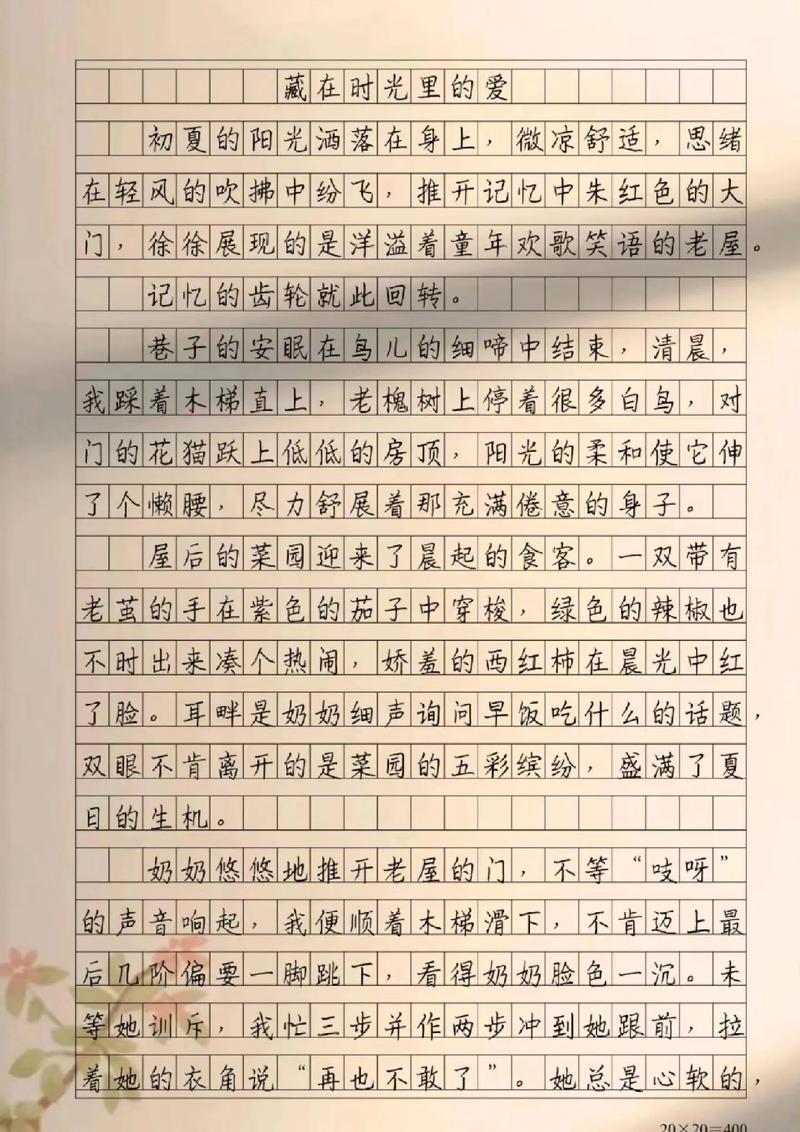 藏在时光里的爱
初夏的阳光洒落在身上，微凉舒适，思绪
在轻风的吹拂中纷飞，推开记忆中朱红色的大
门，徐徐展现的是洋溢着童年欢歌笑语的老屋。
记忆的齿轮就此回转。
巷子的安眠在鸟儿的细啼中结束，清晨，
我踩着木梯直上，老槐树上停着很多白鸟，对
门的花猫跃上低低的房顶，阳光的柔和使它伸
了个懒腰，尽力舒展着那充满倦意的身子。
屋后的菜园迎来了晨起的食客。一双带有
老茧的手在紫色的茄子中穿梭，绿色的辣椒也
不时出来凑个热闹，娇羞的西红柿在晨光中红
了脸。耳畔是奶奶细声询问早饭吃什么的话题，
双眼不肯离开的是菜园的五彩缤纷，盛满了夏
日的生机。
奶奶悠悠地推开老屋的门，不等“吱呀”
的声音响起，我便顺着木梯滑下，不肯迈上最
后几阶偏要一脚跳下，看得奶奶脸色一沉。未
等她训斥，我忙三步并作两步冲到她跟前，拉
着她的衣角说“再也不敢了”。她总是心软的，
20×20=400